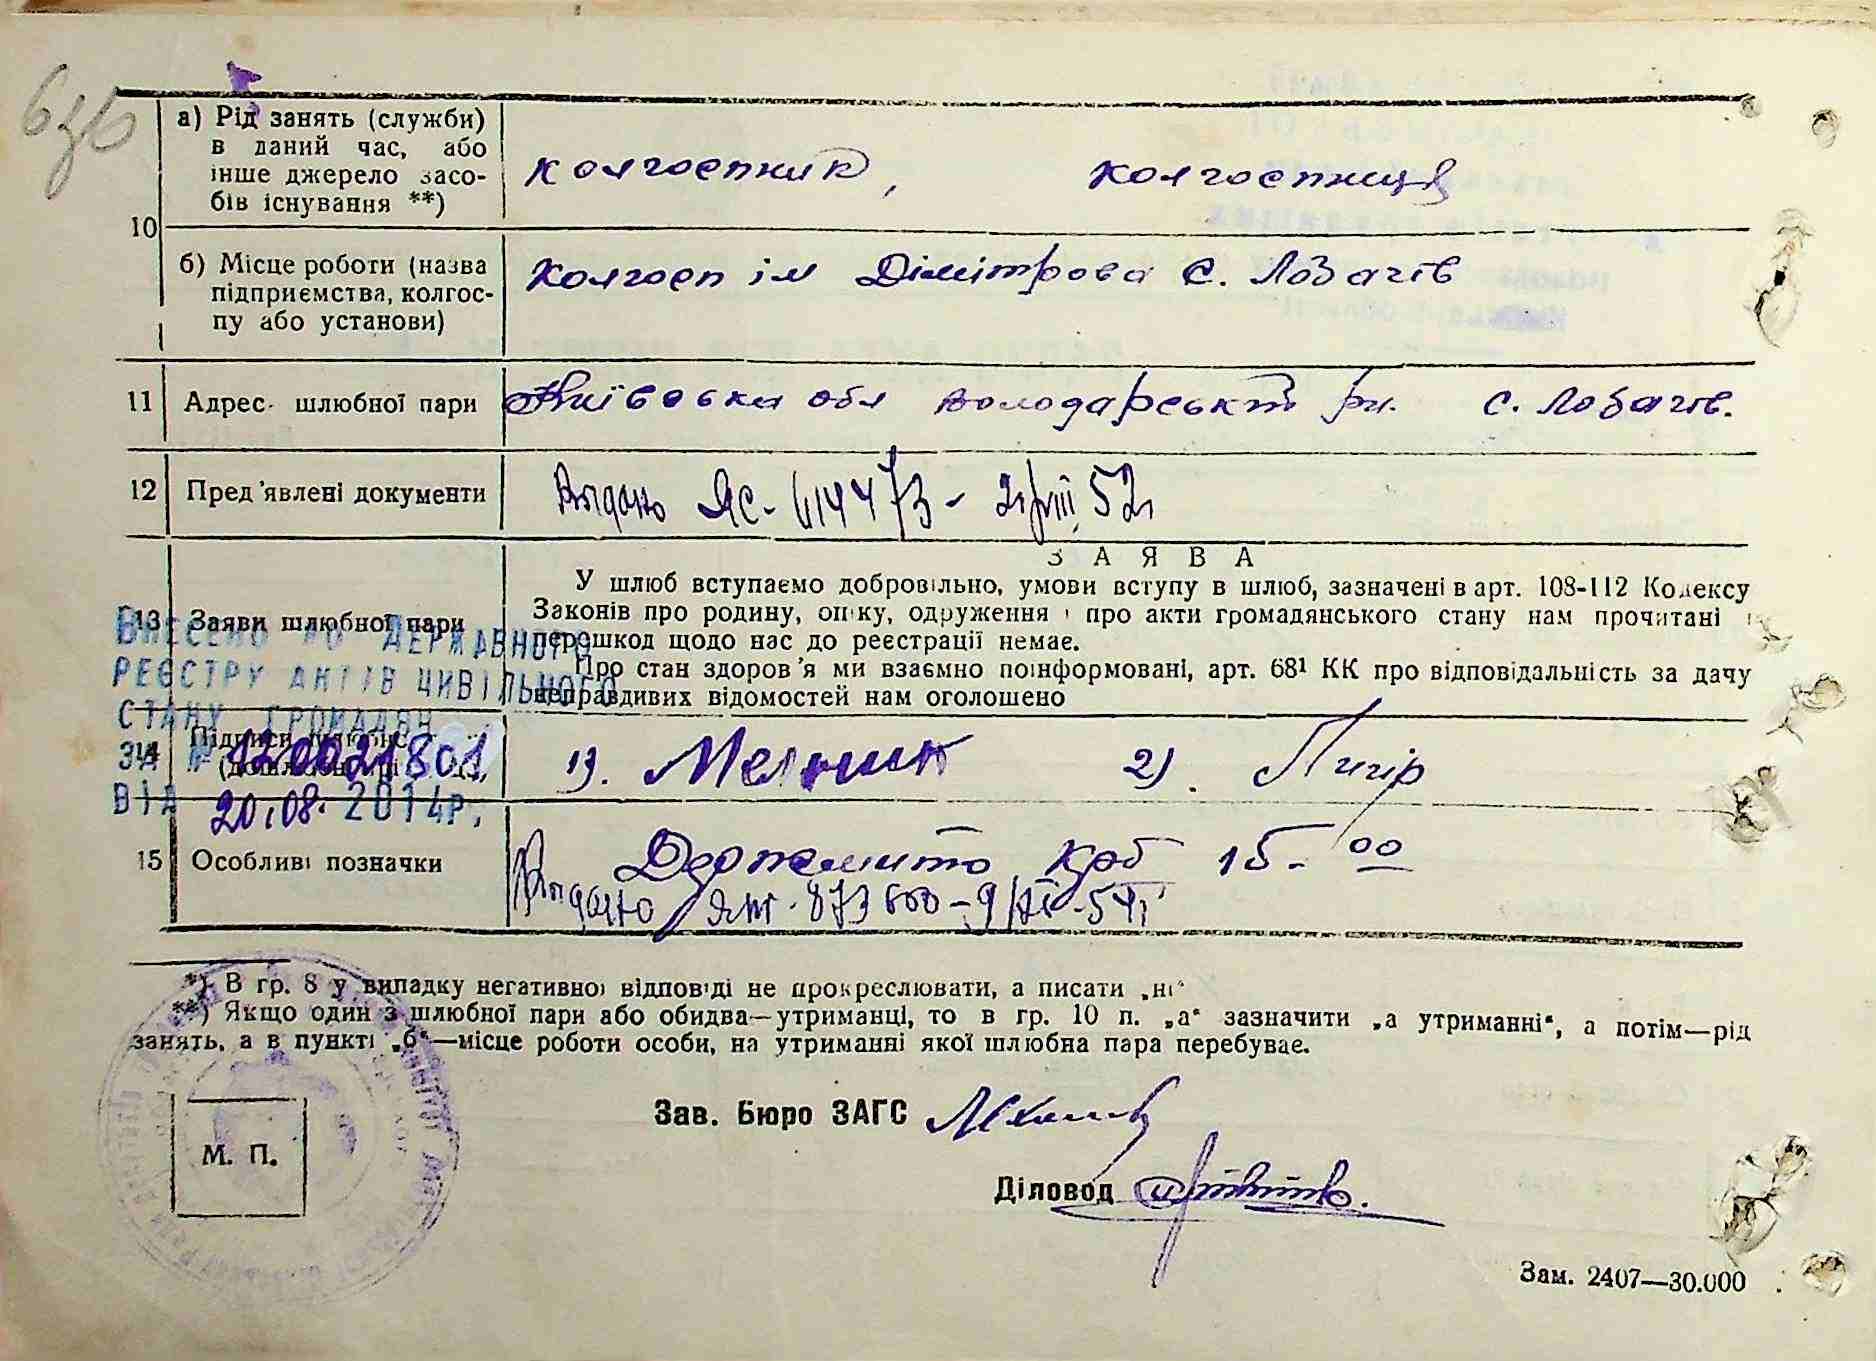 а) Рід занять (служби)
в даний час, або
інше джерело засо-
бів існування **)
колгоспник, колгоспниця
10
б) Місце роботи (назва
підприємства, колгос-
пу або установи)
Колгосп ім Дімітрова с. Лобачів
11 Адрес шлюбної пари Київська обл Володарськ рн. с. Лобачів.
12 Пред'явлені документи Выдано ЯС- 614473 - 52г
ЗАЯВА
13 Заяви шлюбної пари
У шлюб вступаємо добровільно, умови вступу в шлюб, зазначені в арт. 108-112 Кодексу
Законів про родину, опіку, одруження і про акти громадянського стану нам прочитані і
перешкод щодо нас до реєстрації немає.
Про стан здоров'я ми взаємно поінформовані, арт. 68¹ КК про відповідальність за дачу
неправдивих відомостей нам оголошено
ВНЕСЕНО ДО ДЕРЖАВНОГО
РЕЄСТРУ АКТІВ ЦИВІЛЬНОГО
СТАНУ ГРОМАДЯН
ЗА № 120021801
ВІД 20.08. 2014р.
14 Підписи
1). Мельник 2). Пигір
15 Особливі позначки
Держмито крб 15-00
Выдано
*) В гр. 8 у випадку негативної відповіді не прокреслювати, а писати „ні"
**) Якщо один з шлюбної пари або обидва—утриманці, то в гр. 10 п. „а" зазначити „а утриманні", а потім—рід
занять, а в пункті „б"—місце роботи особи, на утриманні якої шлюбна пара перебуває.
Зав. Бюро ЗАГС
М. П.
Діловод
Зам. 2407—30.000